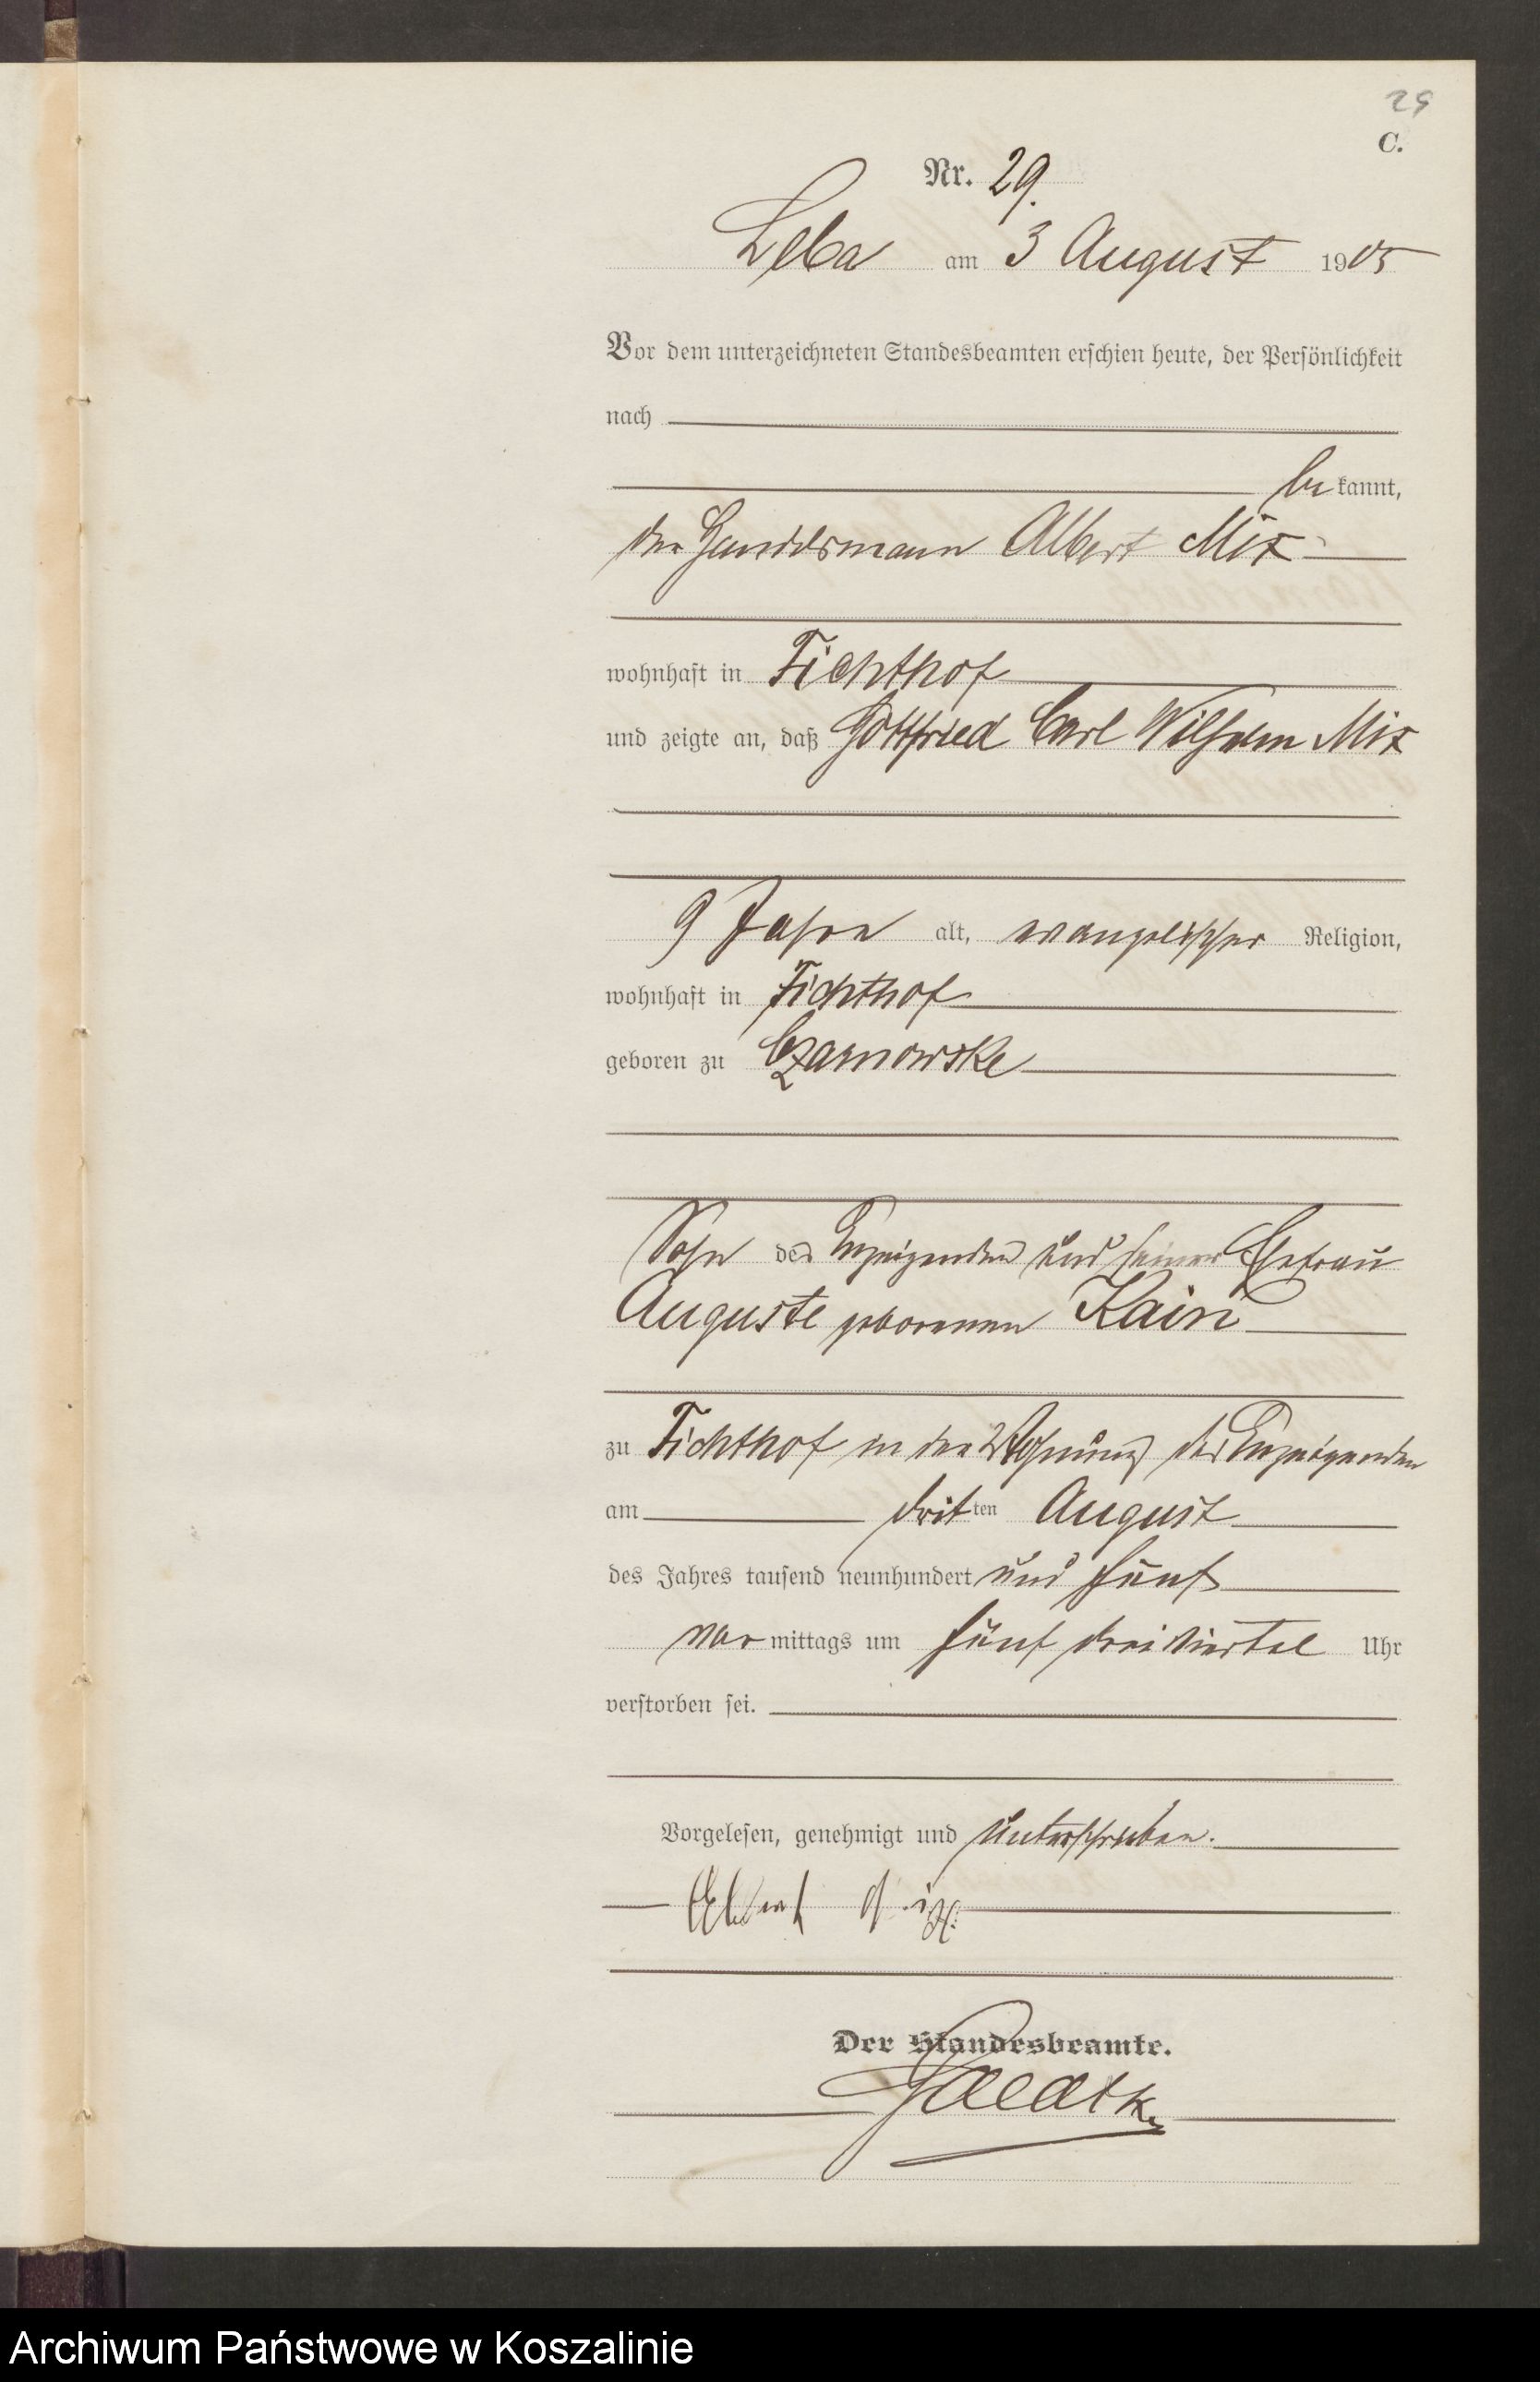 29
C.
Nr. 29.
Leba am 3 August 1905
Vor dem unterzeichneten Standesbeamten erschien heute, der Persönlichkeit
nach
be kannt,
der Handelsmann Albert Mix
wohnhaft in Fichthof
und zeigte an, daß Gottfried Carl Wilhelm Mix
9 Jahre alt, evangelischer Religion,
wohnhaft in Fichthof
geboren zu Czarnowske
Sohn des Anzeigenden und seiner Ehefrau
Auguste geborenen Kain
zu Fichthof in der Wohnung des Anzeigenden
am dritten August
des Jahres tausend neunhundert und fünf
vor mittags um fünf dreiviertel Uhr
verstorben sei.
Vorgelesen, genehmigt und unterschrieben.
Albert Mix.
Der Standesbeamte.
Archiwum Państwowe w Koszalinie